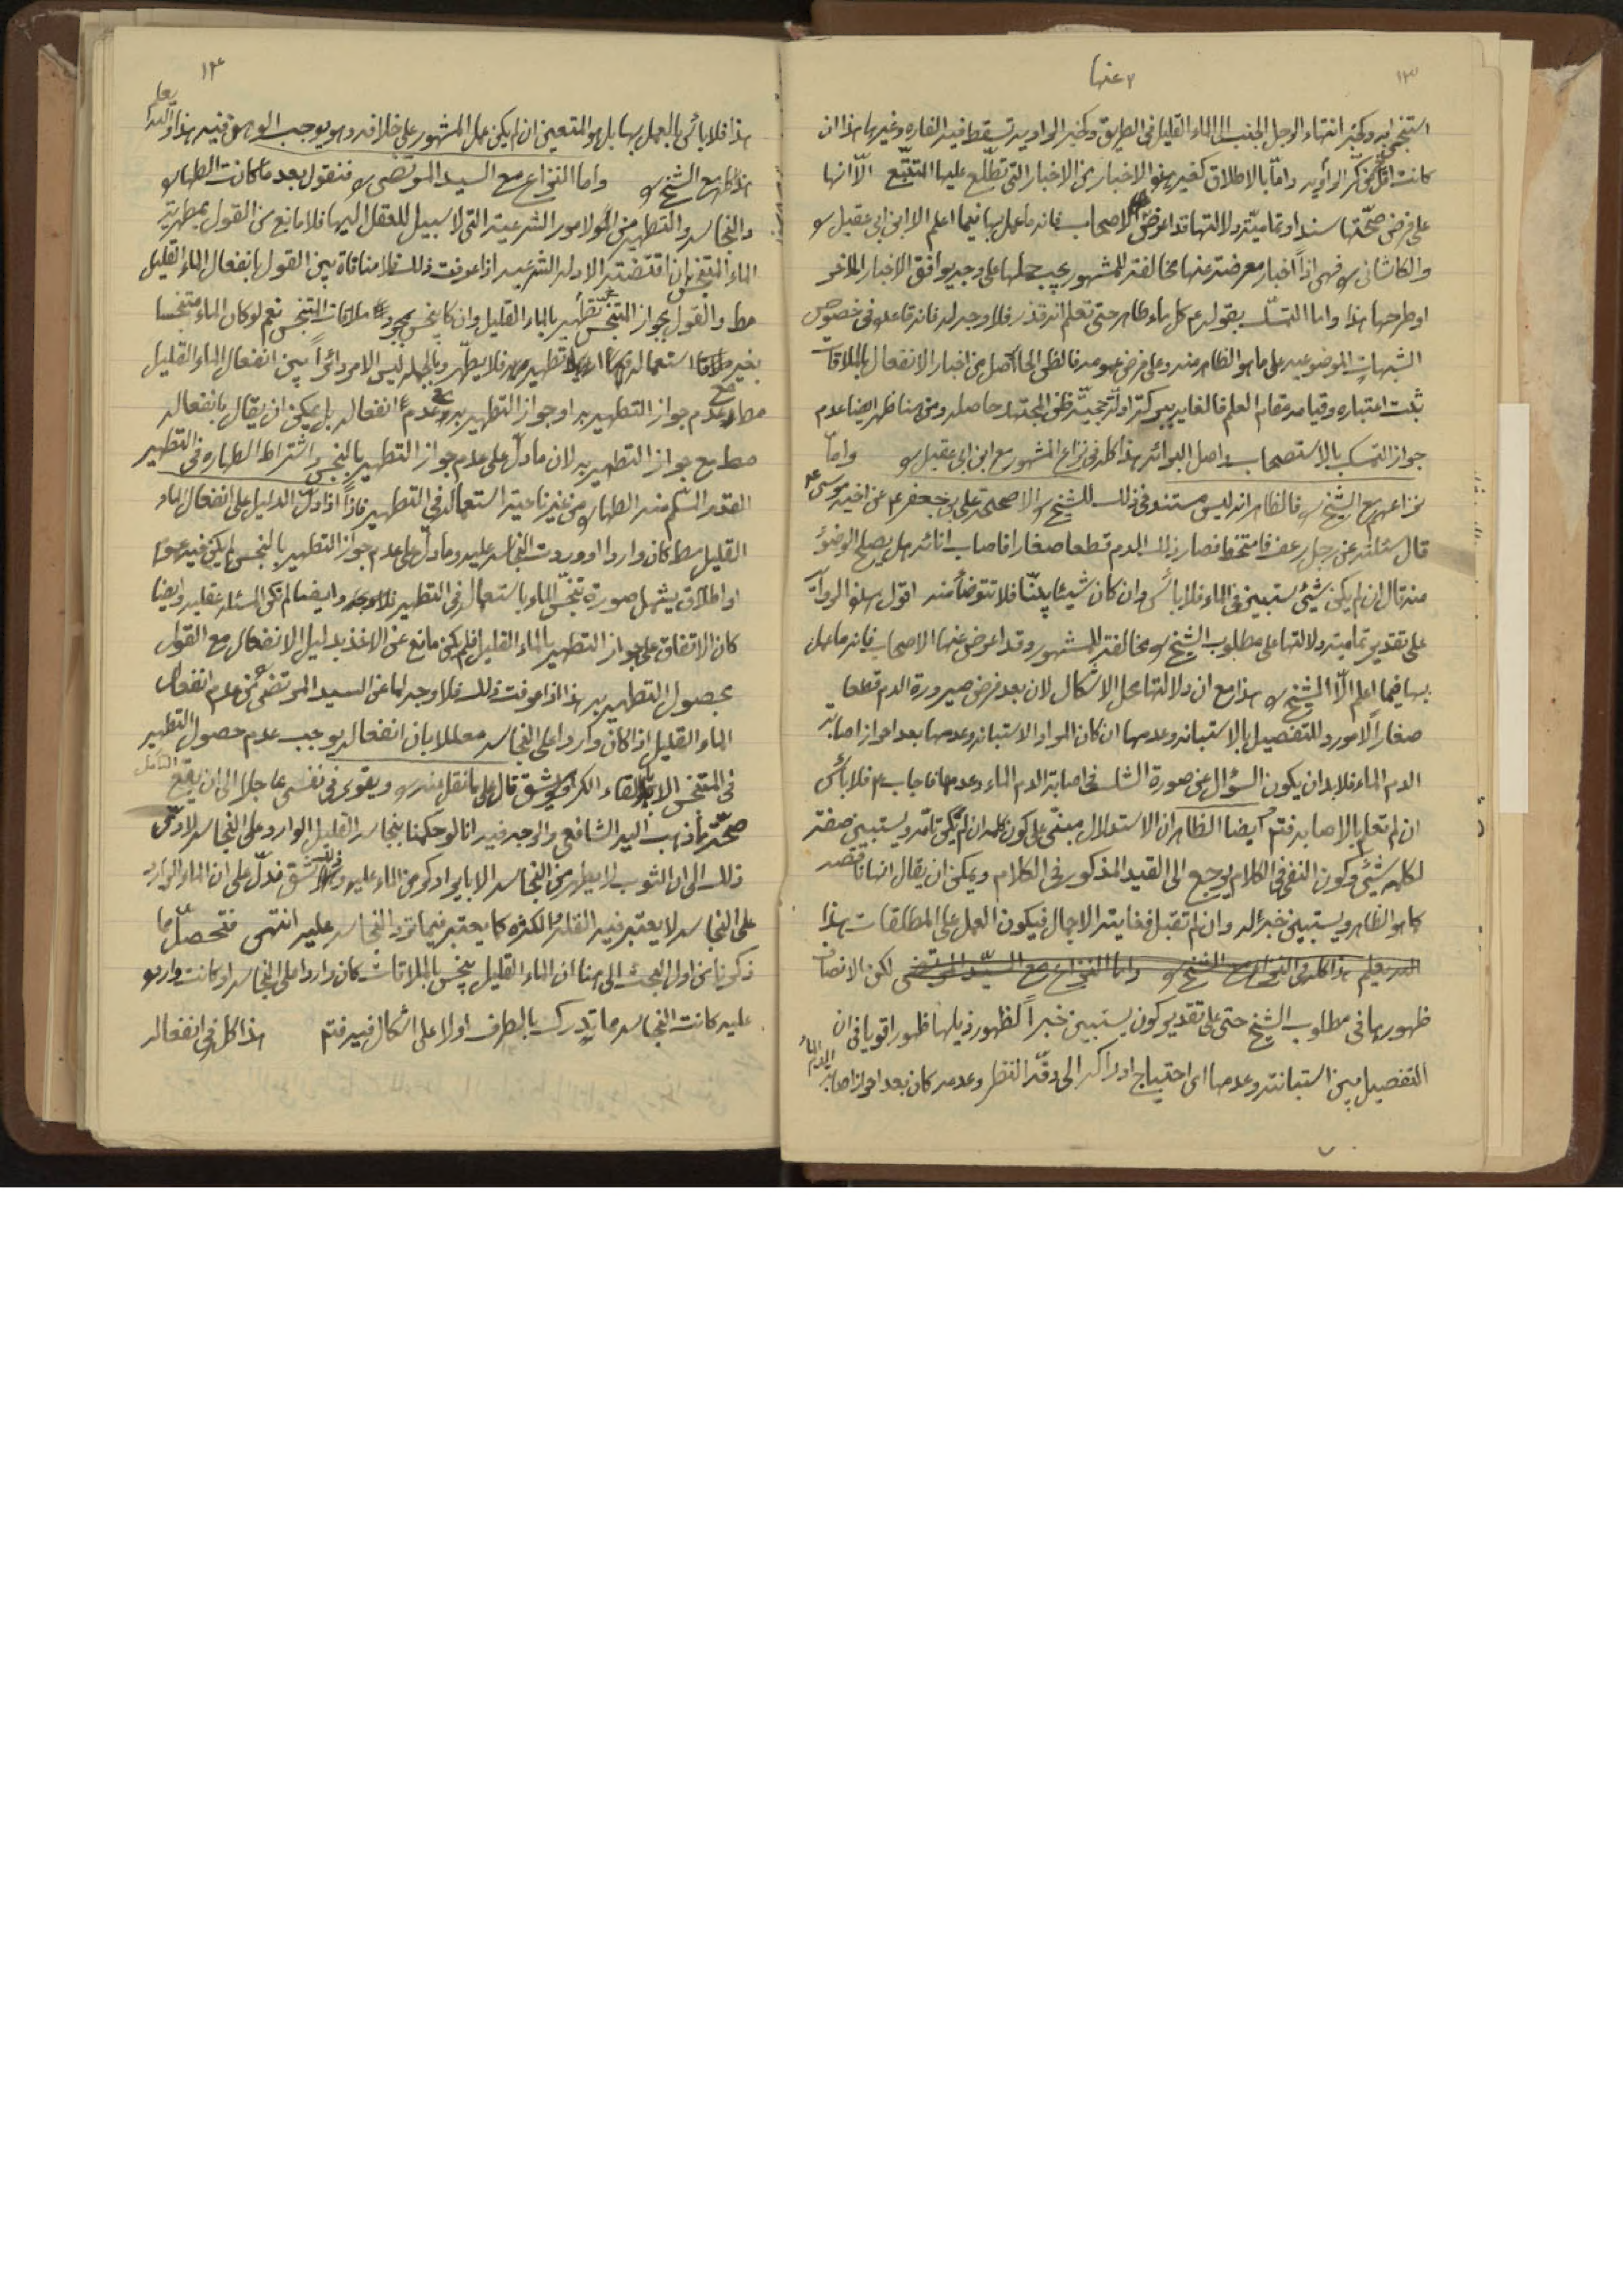 ١٣
استنجى به وكخبر انتهاء الرجل الجنب الى الماء القليل فى الطريق وكخبر الراوية تسقط فيه الفارة وغيرها هذا ان
كانت اقل من كر الراوية واما بالاطلاق كغير هذه الاخبار من الاخبار التى تطلع عليها المتتبع الا انها
على فرض صحتها سندا وتمامية دلالتها قد اعرض الاصحاب فانه ما عمل بها فيما اعلم الا ابن ابى عقيل ره
والكاشانى ره فهى اذا اخبار معرضة عنها مخالفة للمشهور يجب حملها على وجه يوافق الاخبار الاخر
او طرحها هذا واما التمسك بقوله ع كل ماء طاهر حتى تعلم انه قذر فلا وجه له فانه قاعدة فى خصوص
الشبهات الموضوعيه على ما هو الظاهر منه وعلى فرض عمومه فالظن الحاصل من اخبار الانفعال بالملاقات
ثبت اعتباره وقيامه مقام العلم فالغاية ببركة ادلة حجية ظن المجتهد حاصله ومن هنا ظهر ايضا عدم
جواز التمسك بالاستصحاب واصل البرائه هذا كله فى نزاع المشهور مع ابن ابى عقيل ره واما
نزاعهم مع الشيخ ره فالظاهر انه ليس مستنده فى ذلك للشيخ ره الا صحيحة على بن جعفر ع عن اخيه موسى ع
قال سئلته عن رجل رعف فامتخط فصار ذلك الدم قطعا صغارا فاصاب انائه هل يصلح الوضوء
منه قال ان لم يكن شئ يستبين فى الماء فلا باس وان كان شيئا بينا فلا تتوضأ منه اقول هذه الرواية
على تقدير تمامية دلالتها على مطلوب الشيخ ره مخالفة للمشهور وقد اعرض عنها الاصحاب فانه ما عمل
بها فيما اعلم الا الشيخ ره هذا مع ان دلالتها محل الاشكال لان بعد فرض صيرورة الدم قطعا
صغارا لا مورد للتفصيل بالاستبانه وعدمها ان كان المراد الاستبانه وعدمها بعد احراز اصابة
الدم الماء فلا بد ان يكون السؤال عن صورة الشك فى اصابة الدم الماء وعدمها فاجاب ع فلا باس
ان لم تعلم بالاصابه فتم ايضا الظاهر ان الاستدلال مبنى على كون كلمه ان لم تكن تامه ويستبين صفة
لكلمه شئ وكون النفى فى الكلام يرجع الى القيد المذكور فى الكلام ويمكن ان يقال انها ناقصه
كما هو الظاهر ويستبين خبرا له وان لم تقبل فغايته الاجمال فيكون العمل على المطلقات هذا
هذا كله فى النزاع مع الشيخ ره واما النزاع مع السيد المرتضى لكن الانصاف
ظهورها فى مطلوب الشيخ حتى على تقدير كون يستبين خبرا لظهور ذيلها ظهورا قويا فى ان
التفصيل بين استبانته وعدمها اى احتياج ادراكه الى دقة النظر وعدمه كان بعد احراز اصابة الدم الماء
١٤
هذا فلا باس بالعمل بها بل هو المتعين ان لم يكن عمل المشهور على خلافه وهو يوجب الوهن فيه هذا والله يعلم
هذا كله مع الشيخ ره واما النزاع مع السيد المرتضى ره فنقول بعد ما كانت الطهارة
والنجاسه والتطهير من الامور الشرعية التى لا سبيل للعقل اليها فلا مانع من القول بمطهرية
الماء المتنجس ان اقتضته الادله الشرعيه اذا عرفت ذلك فلا منافاة بين القول بانفعال الماء القليل
مط والقول بجواز تطهير المتنجس بالماء القليل وان كان ينجس بمجرد ملاقات المتنجس نعم لو كان الماء متنجسا
بغير استعماله فى تطهيره فلا يطهر وبالجمله ليس الامر دائرا بين انفعال الماء القليل
مط مع عدم جواز التطهير به او جواز التطهير به مع عدم انفعاله بل يمكن ان يقال بانفعاله
مط مع جواز التطهير به لان ما دل على عدم جواز التطهير بالنجس واشتراط الطهاره فى التطهير
القدر المسلم منه الطهارة من غير ناحية استعماله فى التطهير فاذا دل الدليل على انفعال الماء
القليل مط كان واردا او وردت النجاسه عليه وما دل على عدم جواز التطهير بالنجس لم يكن فيه عموم
او اطلاق يشمل صورة تنجس الماء باستعماله فى التطهير وايضا لم تكن المسئله عقليه وايضا
كان الاتفاق على جواز التطهير بالماء القليل فلم يكن مانع عن الاخذ بدليل الانفعال مع القول
بحصول التطهير به هذا اذا عرفت ذلك فلا وجه لما عن السيد المرتضى من عدم انفعال
الماء القليل اذا كان واردا على النجاسه معللا بان انفعاله يوجب عدم حصول التطهير
فى المتنجس الا بالقاء الكر وهو شق قال على ما نقل عنه ره ويقوى فى نفسى عاجلا الى ان يقع التامل
صحة ما ذهب اليه الشافعى والوجه فيه انا لو حكمنا بنجاسه القليل الوارد على النجاسه لادى
ذلك الى ان الثوب لا يطهر من النجاسه الا بايراد كر من الماء عليه وذلك يشق فدل على ان الماء الوارد
على النجاسه لا يعتبر فيه القلة والكثره كما يعتبر فيما ترد النجاسه عليه انتهى فتحصل مما
ذكرنا من اول البحث الى هنا ان الماء القليل ينجس بالملاقات كان واردا على النجاسه او كانت واردة
عليه كانت النجاسه مما تدرك بالطرف اولا على اشكال فيه فتم هذا كله فى انفعاله